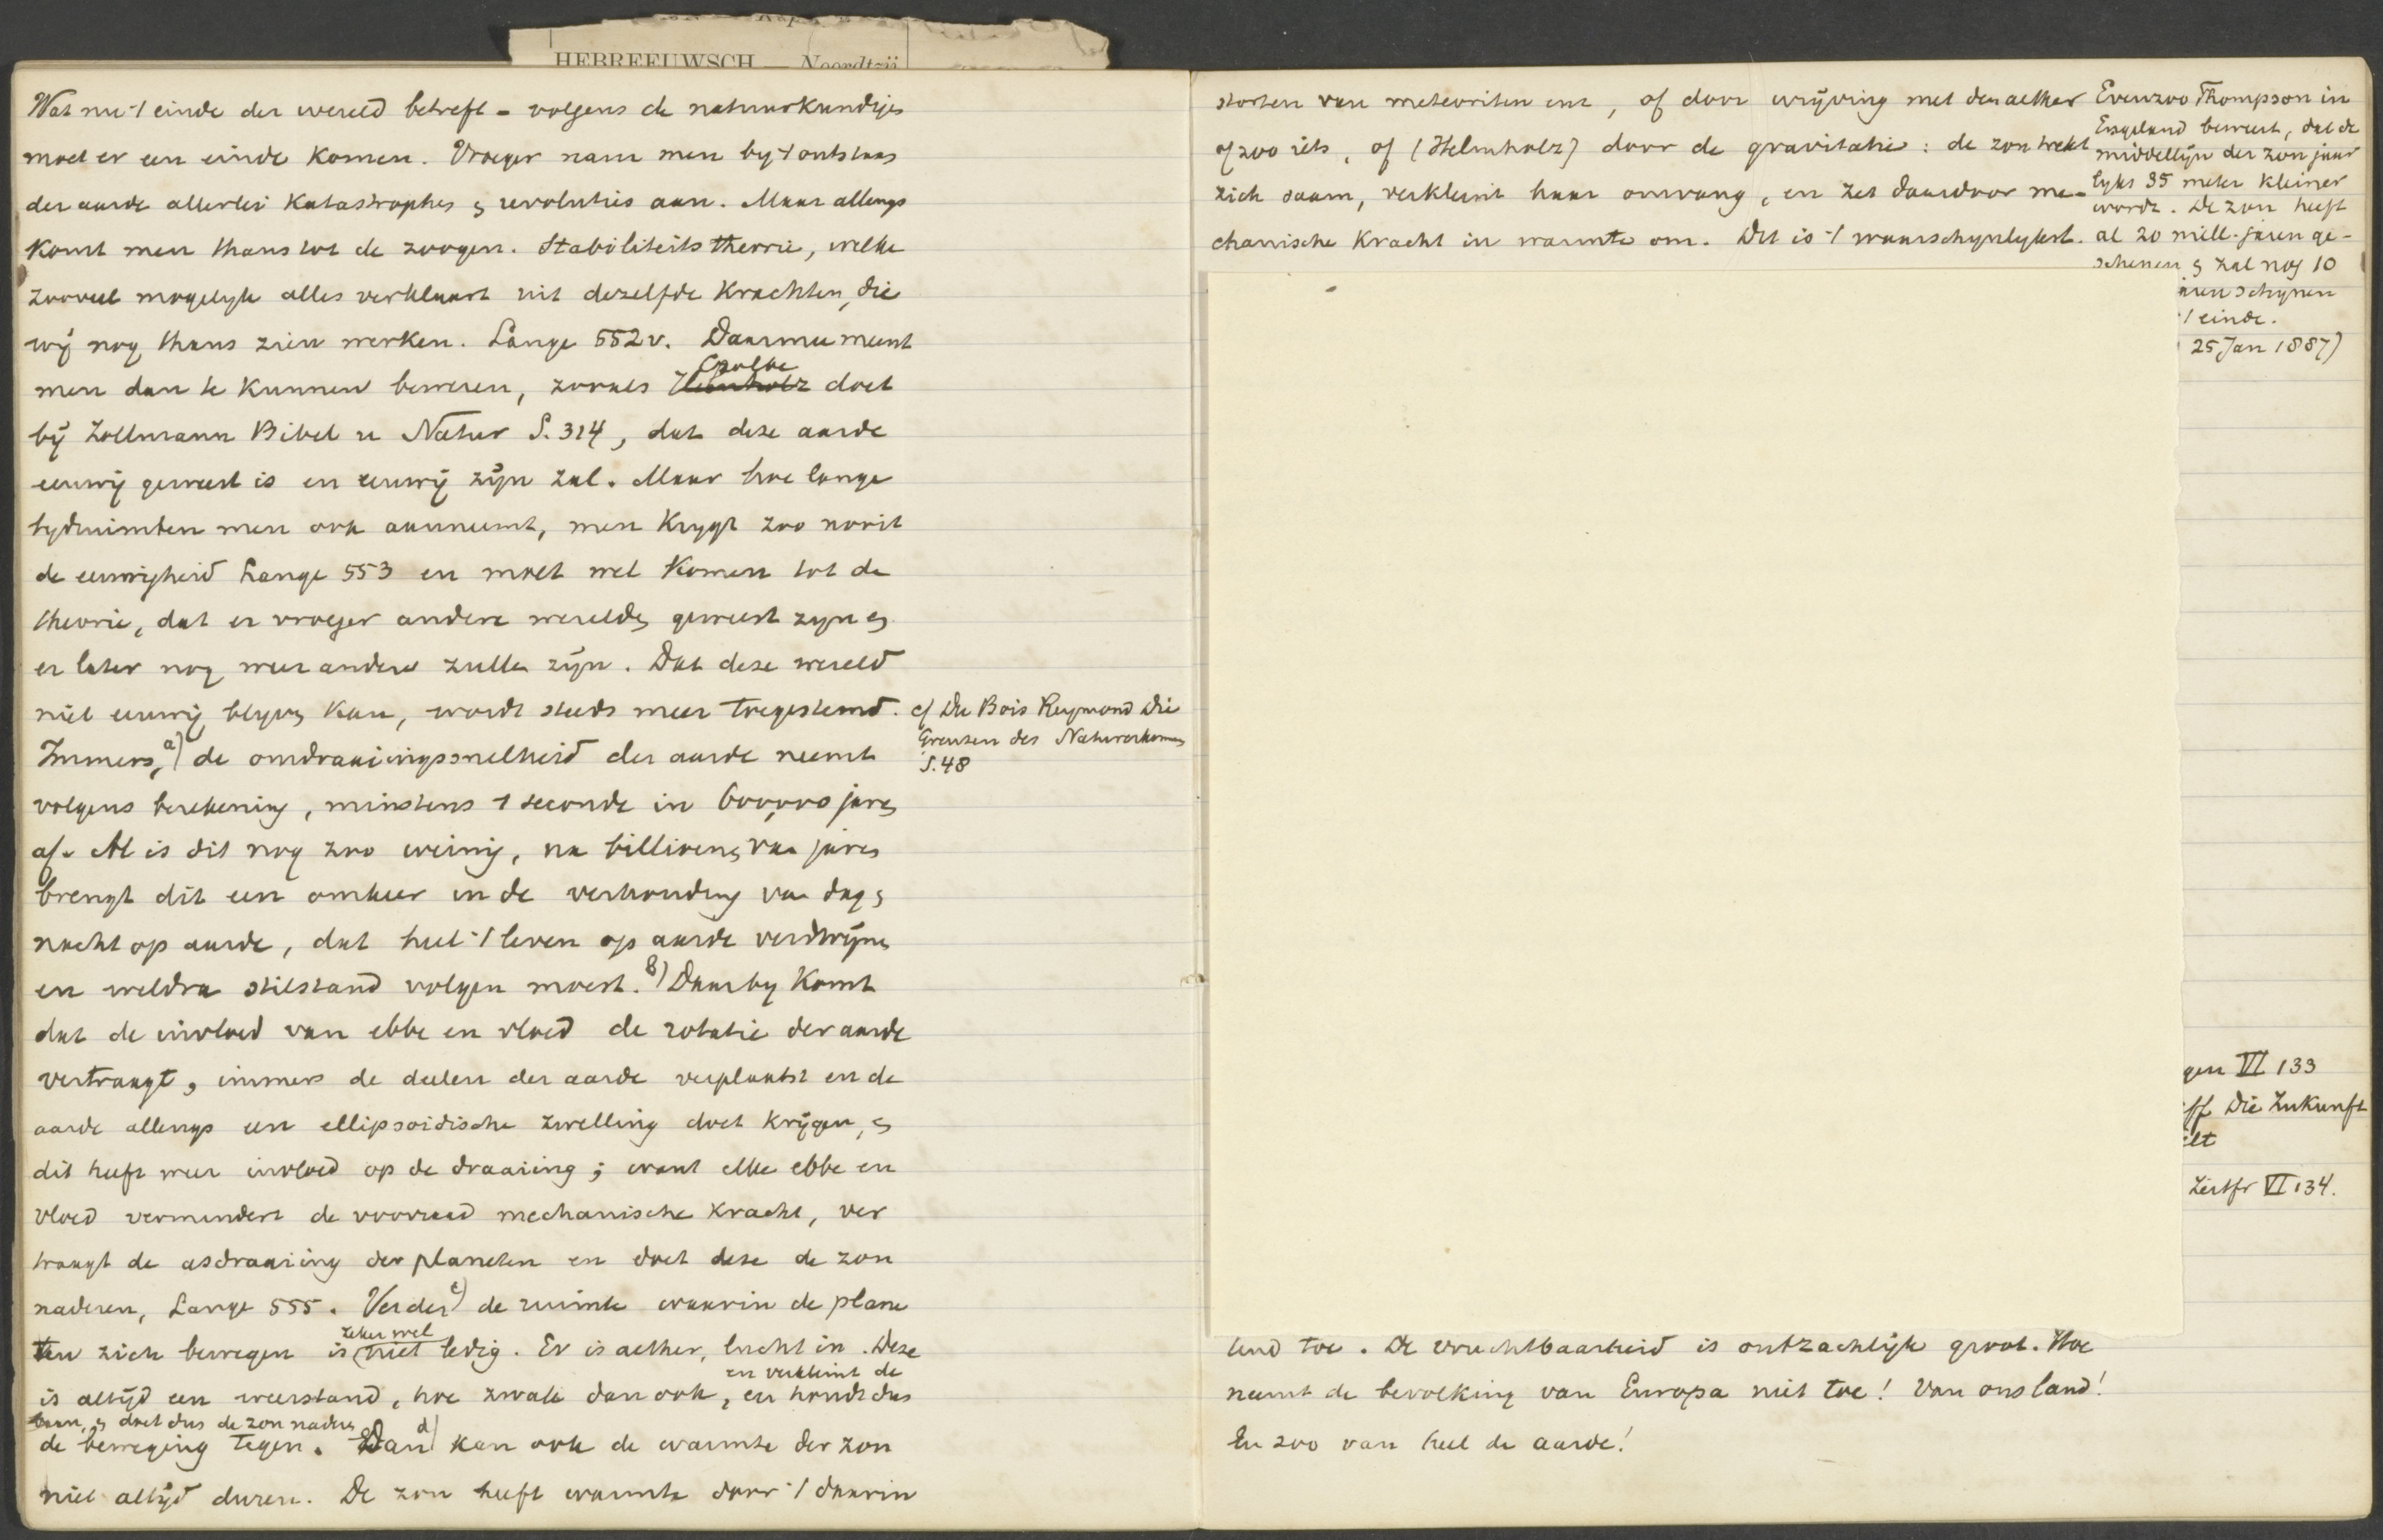 HEBREEUWSCH — Noordtzij
Wat nu 't einde der wereld betreft - volgens de natuurkundigen
moet er een einde komen. Vroeger nam men by 't ontstaan
der aarde allerlei katastrophes & revoluties aan. Maar allengs
komt men thans tot de zoogen. Stabiliteitstheorie, welke
zooveel mogelyk alles verklaart uit dezelfde krachten, die
wij nog thans zien werken. Lange 552v. Daarmee meent
men dan te kunnen beweren, zooals Czolbe doet
bij Zollmann Bibel u Natur S. 314, dat deze aarde
eeuwig geweest is en eeuwig zijn zal. Maar hoe lange
tydruimten men ook aanneemt, men krygt zoo nooit
de eeuwigheid Lange 553 en moet wel komen tot de
theorie, dat er vroeger andere werelden geweest zyn &
er later nog weer andere zullen zijn. Dat deze wereld
niet eeuwig blyven kan, wordt steeds meer toegestemd.
Immers, a) de omdraaiingssnelheid der aarde neemt
volgens berekening, minstens 1 seconde in 600,000 jaren
af. Al is dit nog zoo weinig, na billioenen van jaren
brengt dit een omkeer in de verhouding van dag &
nacht op aarde, dat heel 't leven op aarde verdwijnen
en weldra stilstand volgen moest. b) Daarby komt
dat de invloed van ebbe en vloed de rotatie der aarde
vertraagt, immers de deelen der aarde verplaatst en de
aarde allengs een ellipsoidische zwelling doet krijgen, &
dit heeft weer invloed op de draaiing; want elke ebbe en
vloed vermindert de voorraad mechanische kracht, ver
traagt de asdraaiing der planeten en doet deze de zon
naderen, Lange 555. Verder c) de ruimte waarin de plane
zeker wel
ten zich bewegen is niet ledig. Er is aether, lucht in. Deze
en verkleint de
is altijd een weerstand, hoe zwak dan ook, en houdt dus
baan, & doet dus de zon naderen
de beweging tegen. Dan d) kan ook de warmte der zon
niet altijd duren. De zon heeft warmte door 't daarin
cf Du Bois Reymond Die
Grenzen des Naturerkennens
S. 48
storten van meteorieten enz, of door wrijving met den aether
of zoo iets, of (Helmholz) door de gravitatie: de zon trekt
zich saam, verkleint haar omvang, en zet daardoor me-
chanische kracht in warmte om. Dit is 't waarschynlykst.
Evenzoo Thompson in
Engeland beweert, dat de
middellijn der zon jaar
lyks 35 meter kleiner
wordt. De zon heeft
al 20 mill. jaren ge-
schenen & zal nog 10
aren schijnen
't einde.
25 Jan 1887)
gen VI 133
ff Die Zukunft
elt
Zeitfr VI 134.
lend toe. De vruchtbaarheid is ontzachlijk groot. Hoe
neemt de bevolking van Europa niet toe! Van ons land!
En zoo van heel de aarde!